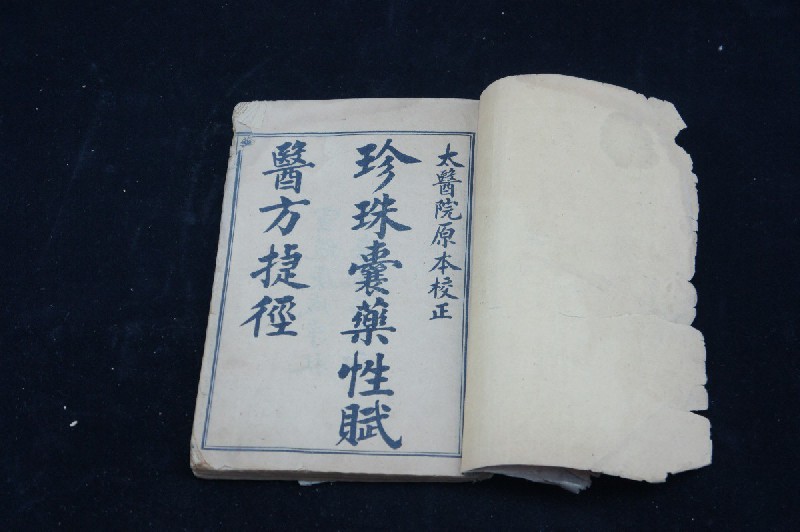 太醫院原本校正
珍珠囊藥性賦
醫方捷徑